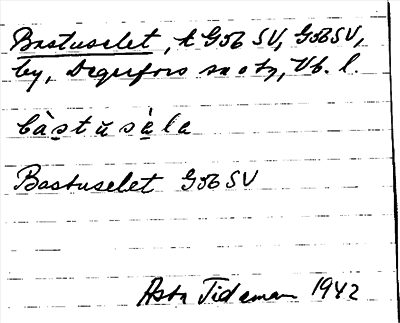 Bastuselet, t GöbSV, GöbSV,
by, Degerfors sn o tg, Vb. l.
bàstŭsèla
Bastuselet GöbSV
Asta Tideman 1942